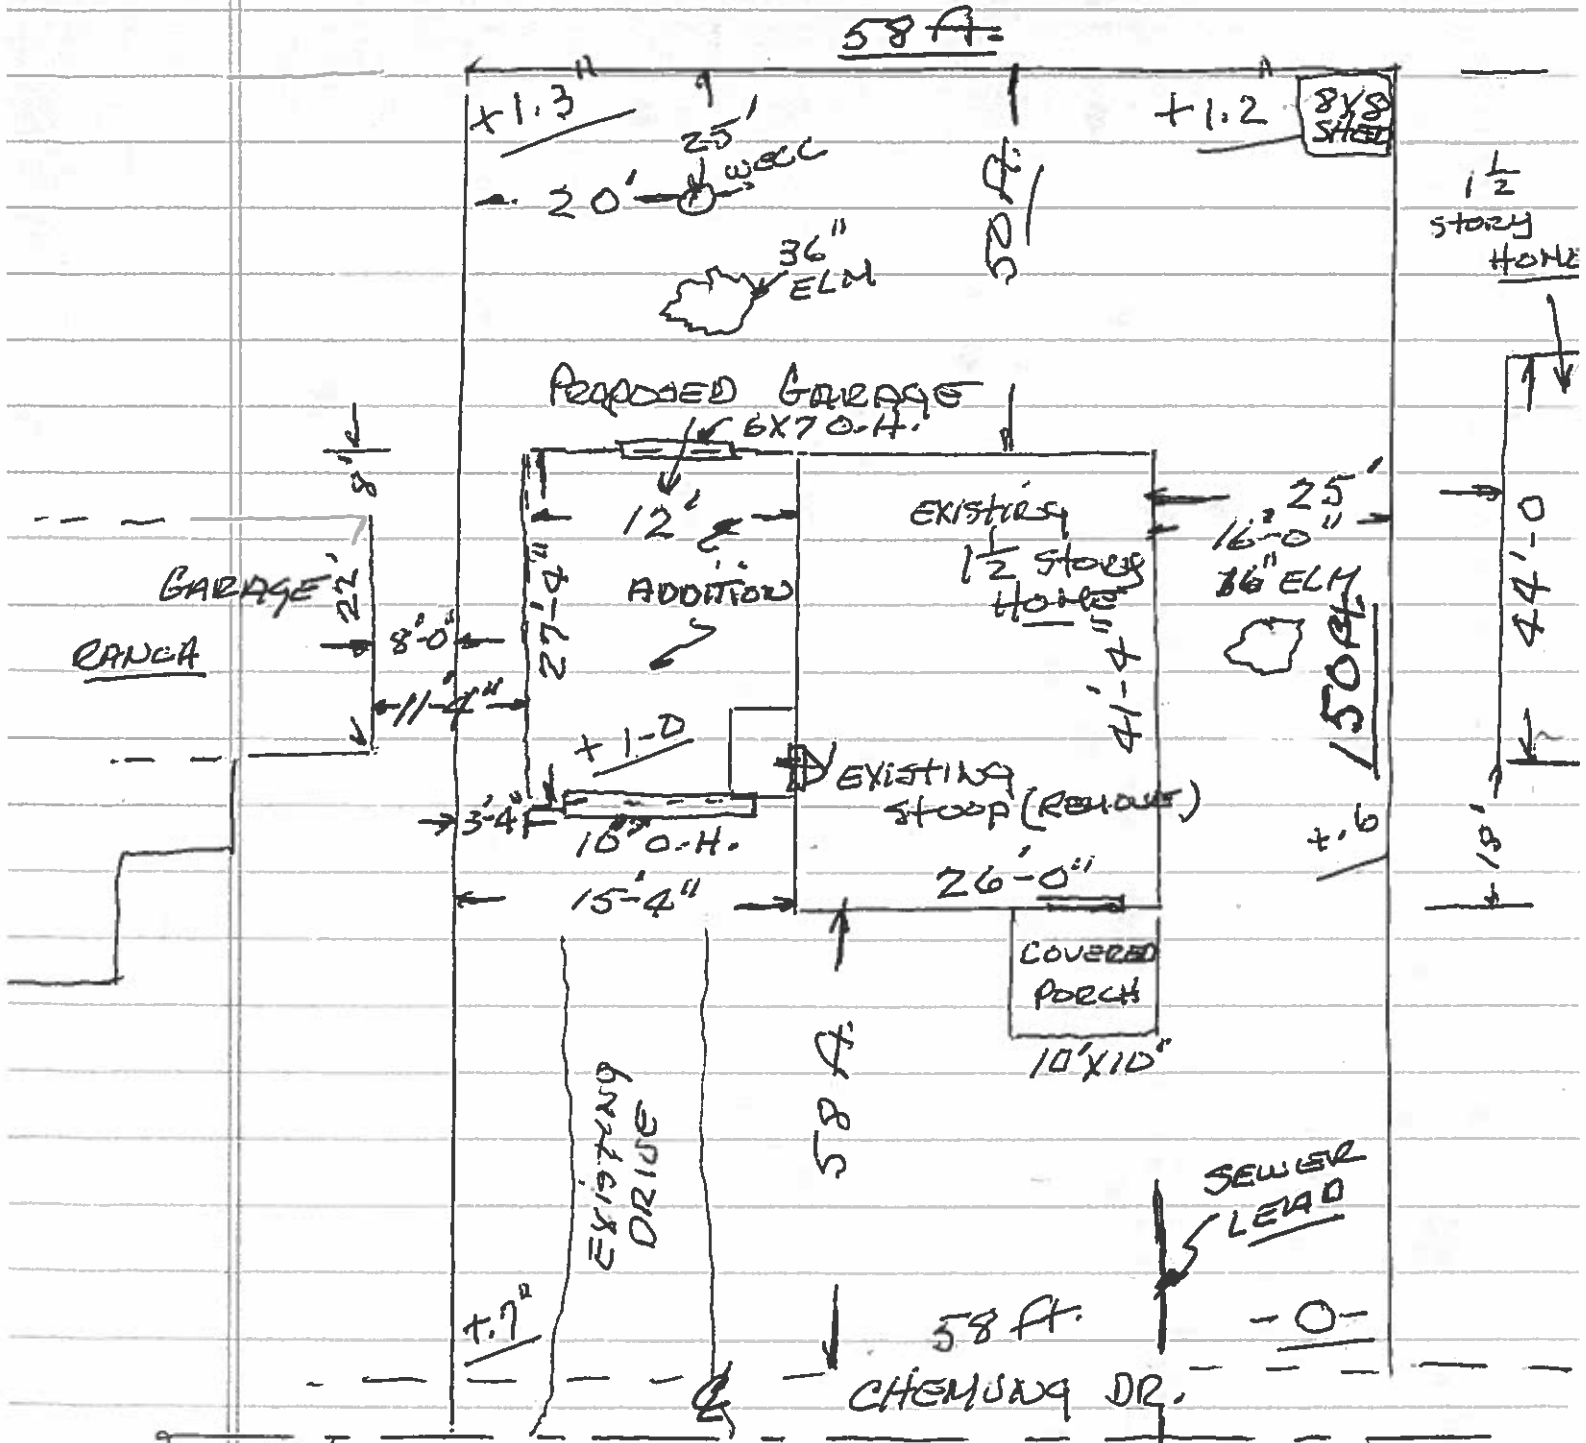 58 ft.
+1.3
25'
+1.2
8X8
SHED
20'
WELL
50 ft.
1 1/2
STORY
HOME
36"
ELM
PROPOSED GARAGE
6X7 O.H.
8'
12'
EXISTING
1 1/2 STORY
HOME
25'
16'-0"
36" ELM
44'-0
GARAGE
22'
27'-4"
ADDITION
RANCH
8'-0"
11'-4"
41'-4"
150 ft.
+ 1-0
EXISTING
STOOP (REMOVE)
3'-4"
O.H.
+.6
15'-4"
26'-0"
COVERED
PORCH
10'X10"
58 ft.
EXISTING
DRIVE
SEWER
LEAD
+.7"
58 ft.
-0-
CHEMUNG DR.